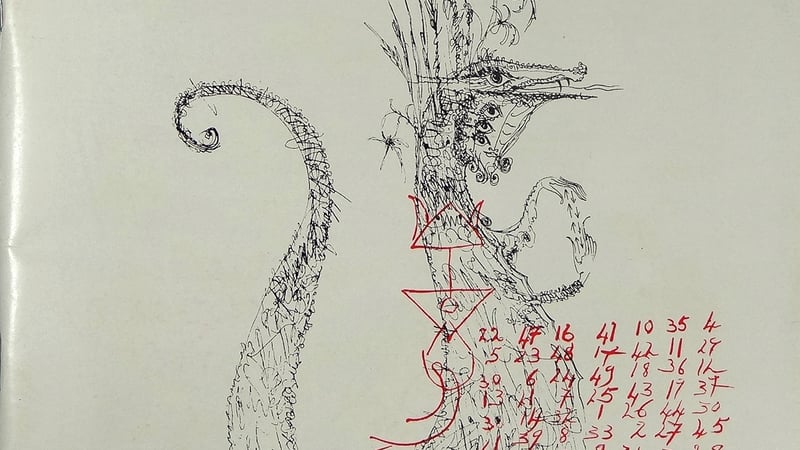 22 47 16 41 10 35 4
5 23 48 17 42 11 29
30 6 24 49 18 36 12
13 7 25 43 19 37
14 32 1 26 44
39 8 33 2 27 45